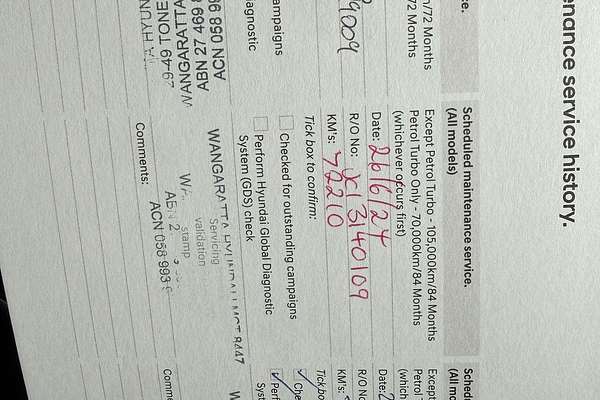 enance service history.
ce.
n/72 Months
72 Months
9009
ampaigns
agnostic
WANGARATTA
ABN 27 469
ACN 058 99
Scheduled maintenance service.
(All models)
Except Petrol Turbo - 105,000km/84 Months
Petrol Turbo Only - 70,000km/84 Months
(whichever occurs first)
Date: 26/6/24
R/O No: X1 3140109
KM's: 72210
Tick box to confirm:
Checked for outstanding campaigns
Perform Hyundai Global Diagnostic
System (GDS) check
WANGARATTA HYUNDAI LMCT 8447
Servicing
validation
stamp
ACN 058 993
Comments:
Sched
(All mo
Except
Petrol
(which
Date: 2
R/O No
KM's:
Tick bo
Che
Perf
Syst
W
Comm